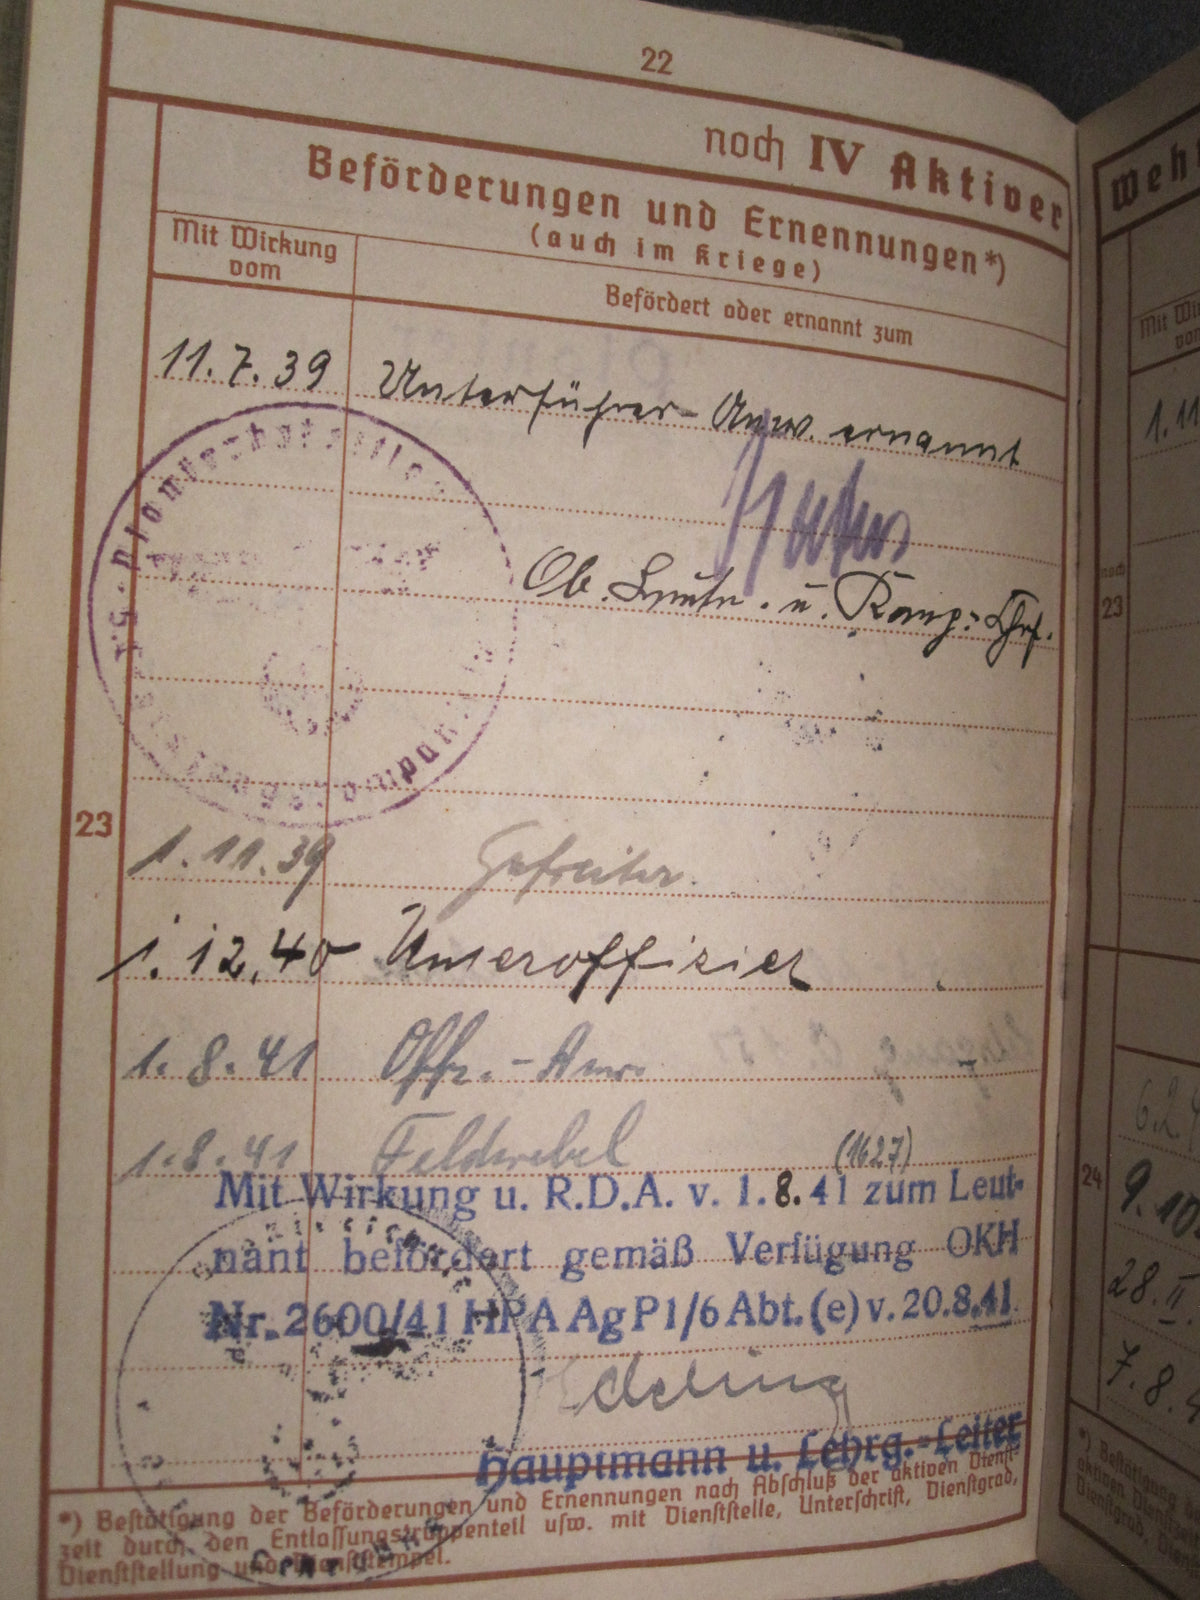 22
noch IV Aktiver
Beförderungen und Ernennungen*)
(auch im Kriege)
Mit Wirkung
vom
Befördert oder ernannt zum
11.7.39 Unterführer-Anw. ernannt
Ob. Leutn. u. Komp.-Chef.
23
1.11.39 Gefreiter.
1.12.40 Unteroffizier
1.8.41 Offz.-Anw.
1.8.41 Feldwebel (1627)
Mit Wirkung u. R.D.A. v. 1.8.41 zum Leut-
nant befördert gemäß Verfügung OKH
Nr. 2600/41 HPA Ag P1/6 Abt. (e) v. 20.8.41
Hauptmann u. Lehrg.-Leiter
*) Bestätigung der Beförderungen und Ernennungen nach Abschluß der aktiven Dienst-
zeit durch den Entlassungstruppenteil usw. mit Dienststelle, Unterschrift, Dienstgrad,
Dienststellung und Dienststempel.
Weh
Mit Wi
vom
1.11
noch
23
6.2.
24
9.10.
28.II.
7.8.4
*) Bestätigung
aktiven Dienstzeit
Dienstgrad, Dien